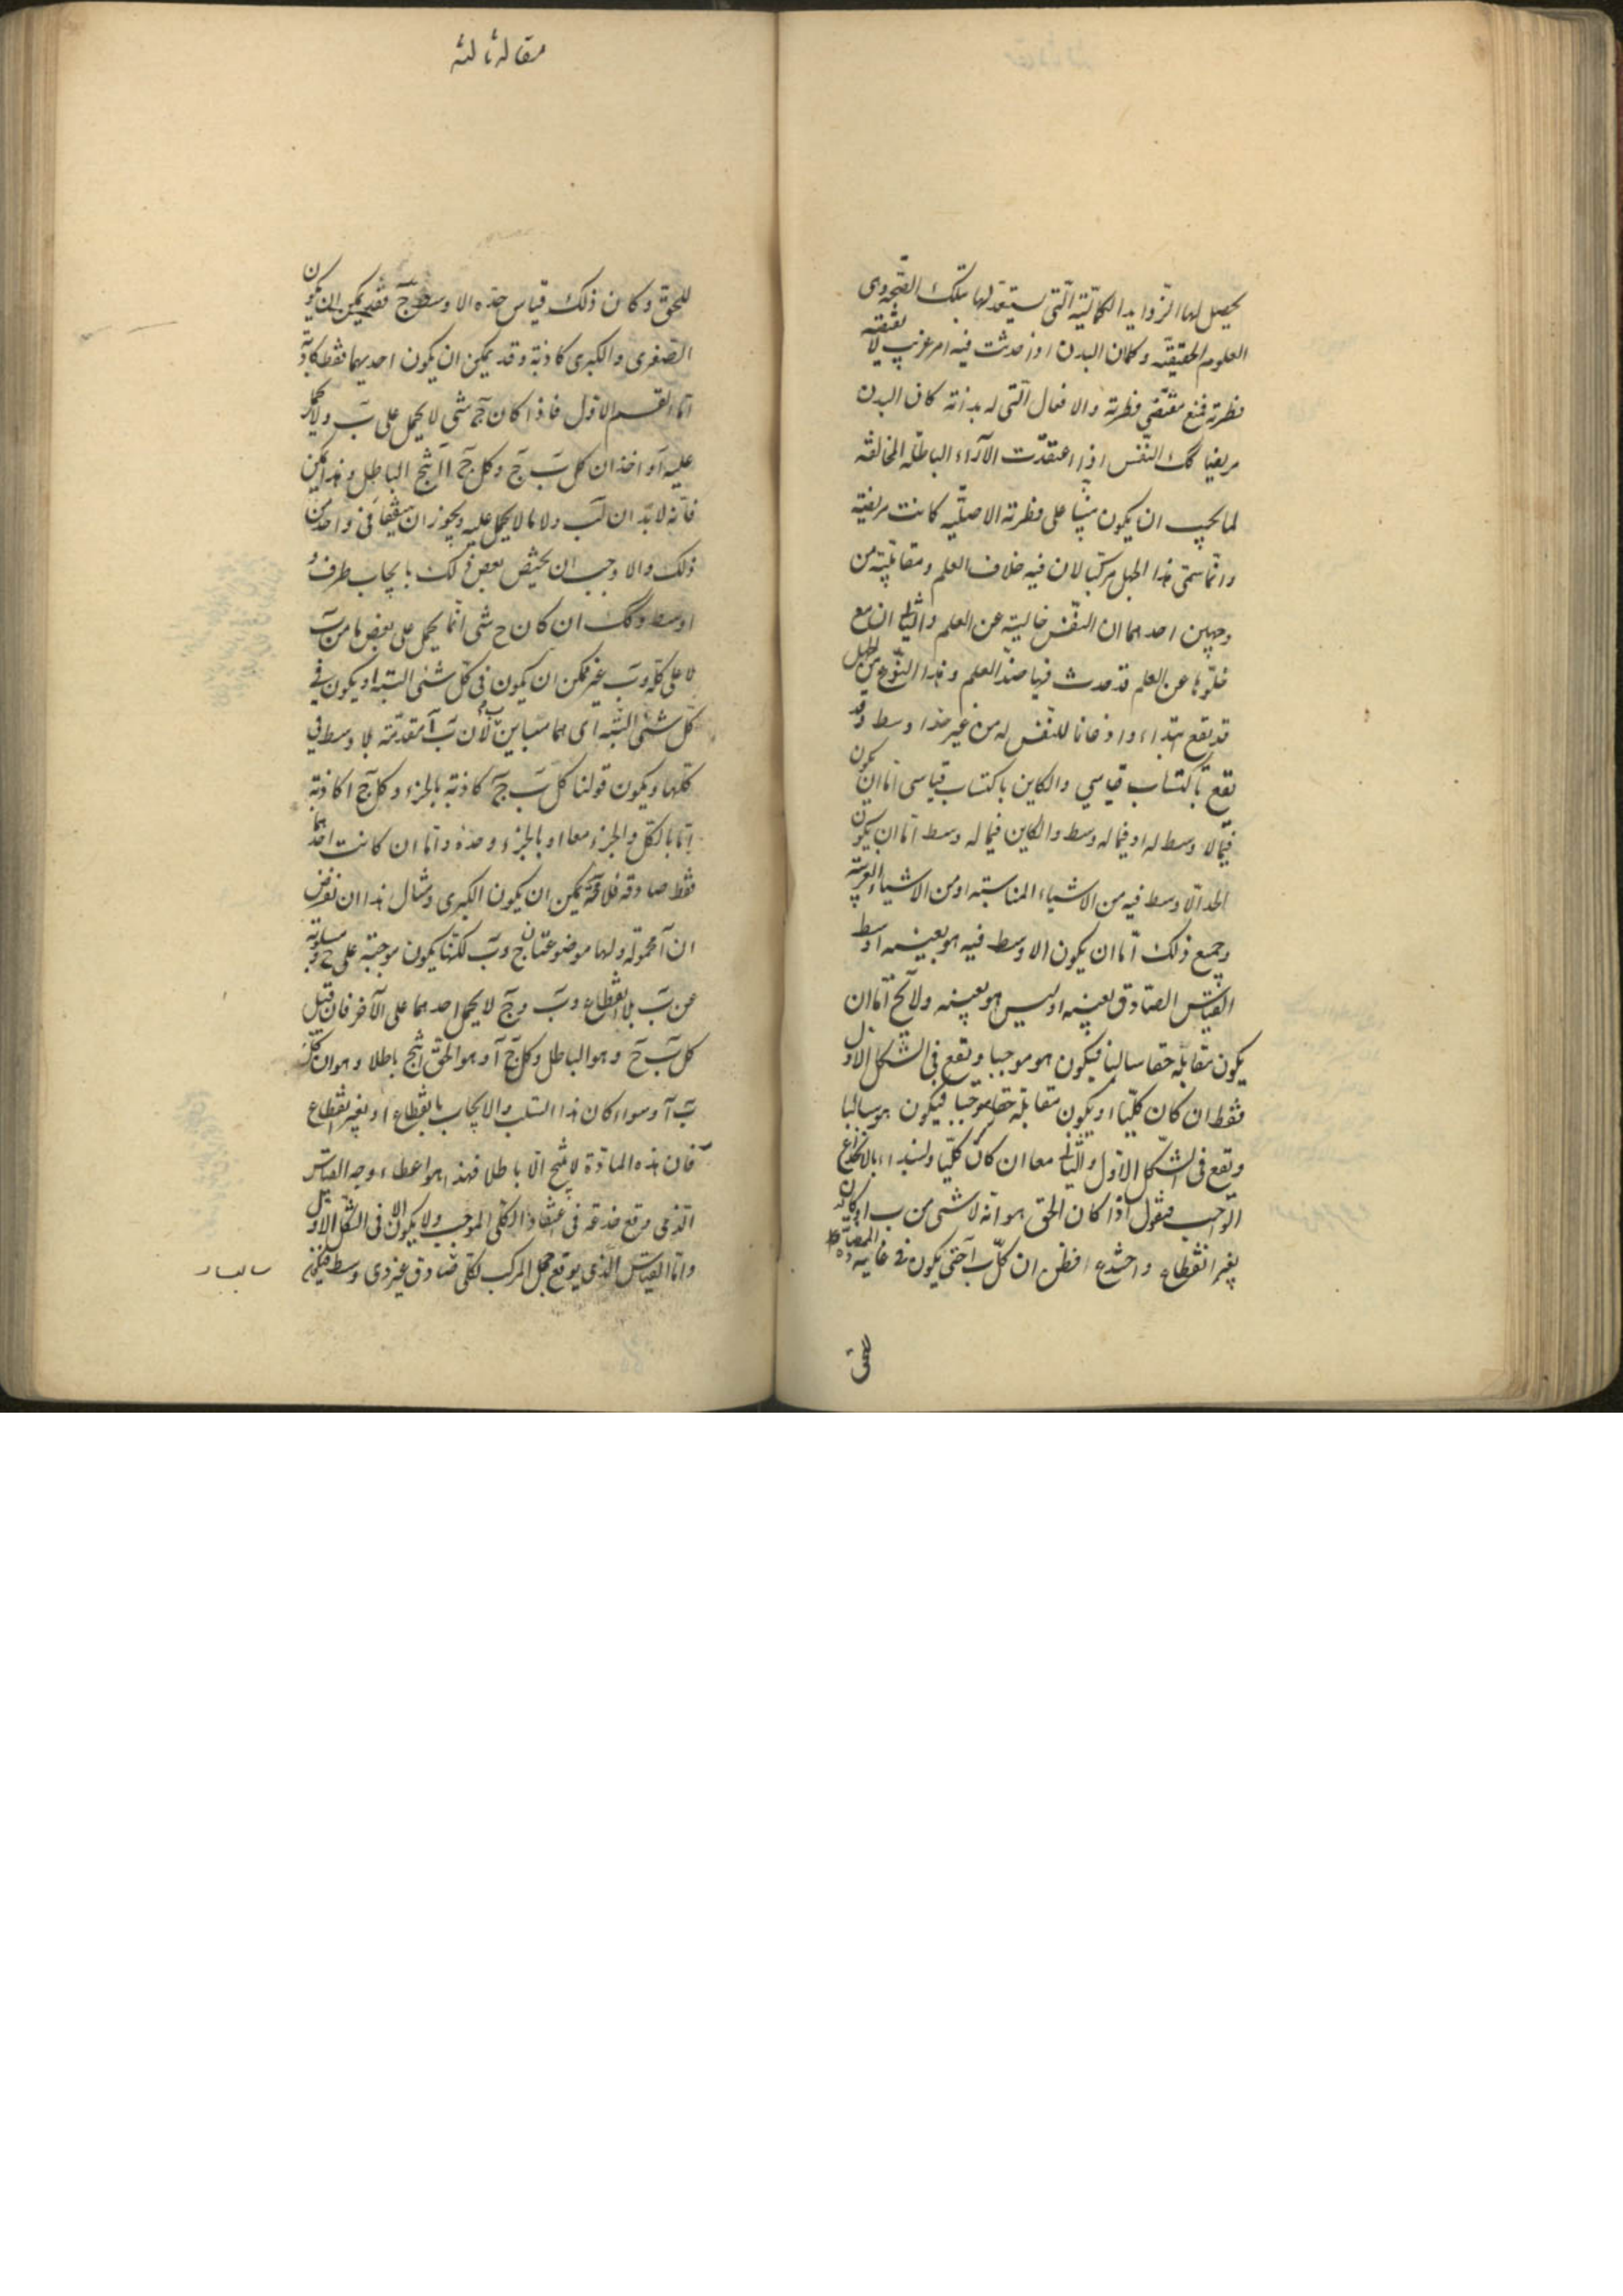 يحصل لها الزوايد الكمالية التى يستعد لها بتلك الصحة وهى
العلوم الحقيقية وكما ان البدن اذا حدثت فيه امر غريب لا يقتضيه
فطرته فمنع مقتضى فطرته والافعال التى له بذاته كان البدن
مريضا كك النفس اذا اعتقدت الآراء الباطلة المخالفة
لما يجب ان يكون مبنيا على فطرته الاصلية كانت مريضة
وانما سمى هذا الجهل مركبا لان فيه خلاف العلم ومقابلته من
وجهين احدهما ان النفس خالية عن العلم والثانى ان مع
خلوها عن العلم قد حدث فيها ضد العلم وهذا النوع من الجهل
قد يقع ابتداء واذعانا للنفس له من غير حد اوسط وقد
يقع باكتساب قياسى والكاين باكتساب قياسى اما ان يكون
فيما لا وسط له او فيما له وسط والكاين فيما له وسط اما ان يكون
الحد الاوسط فيه من الاشياء المناسبة او من الاشياء الغريبة
وجميع ذلك اما ان يكون الاوسط فيه هو بعينه اوسط
القياس الصادق بعينه او ليس هو بعينه ولا يخ اما ان
يكون مقابله حقا سالبا فيكون هو موجبا ويقع فى الشكل الاول
فقط ان كان كليا او يكون مقابله حقا موجبا فيكون هو سالبا
ويقع فى الشكل الاول والثانى معا ان كان كليا ولنبداء بالانخداع
الواجب فنقول اذا كان الحق هو انه لا شى من ب ا وكان
بغير انقطاع وانخدع فظن ان كل ب آ حتى يكون فى غاية المضادة
للحق
مقاله ثالثه
للحق وكان ذلك قياس حده الاوسط ج فقد يمكن ان يكون
الصغرى والكبرى كاذبة وقد يمكن ان يكون احديهما فقط كاذبة
اما القسم الاول فاذا كان ج شى لا يحمل على ب ولا يحمل
عليه آ واخذ ان كل ب ج وكل ج آ انتج الباطل وهذا يمكن
فانه لا بد ان لب ولا ما لا يحمل عليه ويجوز ان يتفقا فى واحد من
ذلك والا وجب ان يختص بعض ذلك بايجاب طرف و
اوسط وكك ان كان ح شى انما يحمل على بعض ما من ب
لا على كله وب غير ممكن ان يكون فى كل شى البتة او يكون فى
كل شى البتة اى هما متباين لان ب آ مقدمة بلا وسط فى
كلها ويكون قولنا كل ب ج كاذبة بالجزء وكل ج ا كاذبة
اما بالكل والجزء معا او بالجزء وحده واما ان كانت احدهما
فقط صادقة فلا محة يمكن ان يكون الكبرى ومثال هذا ان نفرض
ان آ محمولة ولها موضوعتان ج وب لكنها يكون موجبة على ج ومسلوبة
عن ب بلا انقطاع وب وج لا يحمل احدهما على الآخر فان قيل
كل ب ج وهو الباطل وكل ج آ وهو الحق انتج باطلا وهو ان كل
ب آ وسواء كان هذا السلب والايجاب بانقطاع او بغير انقطاع
فان هذه المادة لا ينتج الا باطلا فهذا هو اعطاء وجه القياس
الذى وقع خدعة فى اعتقاد الكلى الموجب ولا يكون الا فى الشكل الاول
واما القياس الذى يوقع جهل المركب لكلى صادق غير ذى وسط فيمكن